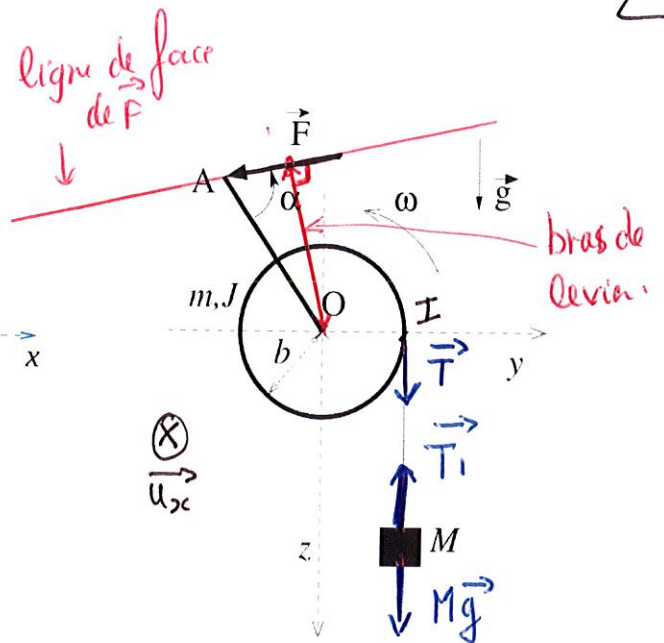 ligne de face
de F⃗
F⃗
A
α
ω
g⃗
bras de
levier.
m,J
O
I
b
x
y
T⃗
ⓧ
u⃗x
T⃗1
z
M
Mg⃗